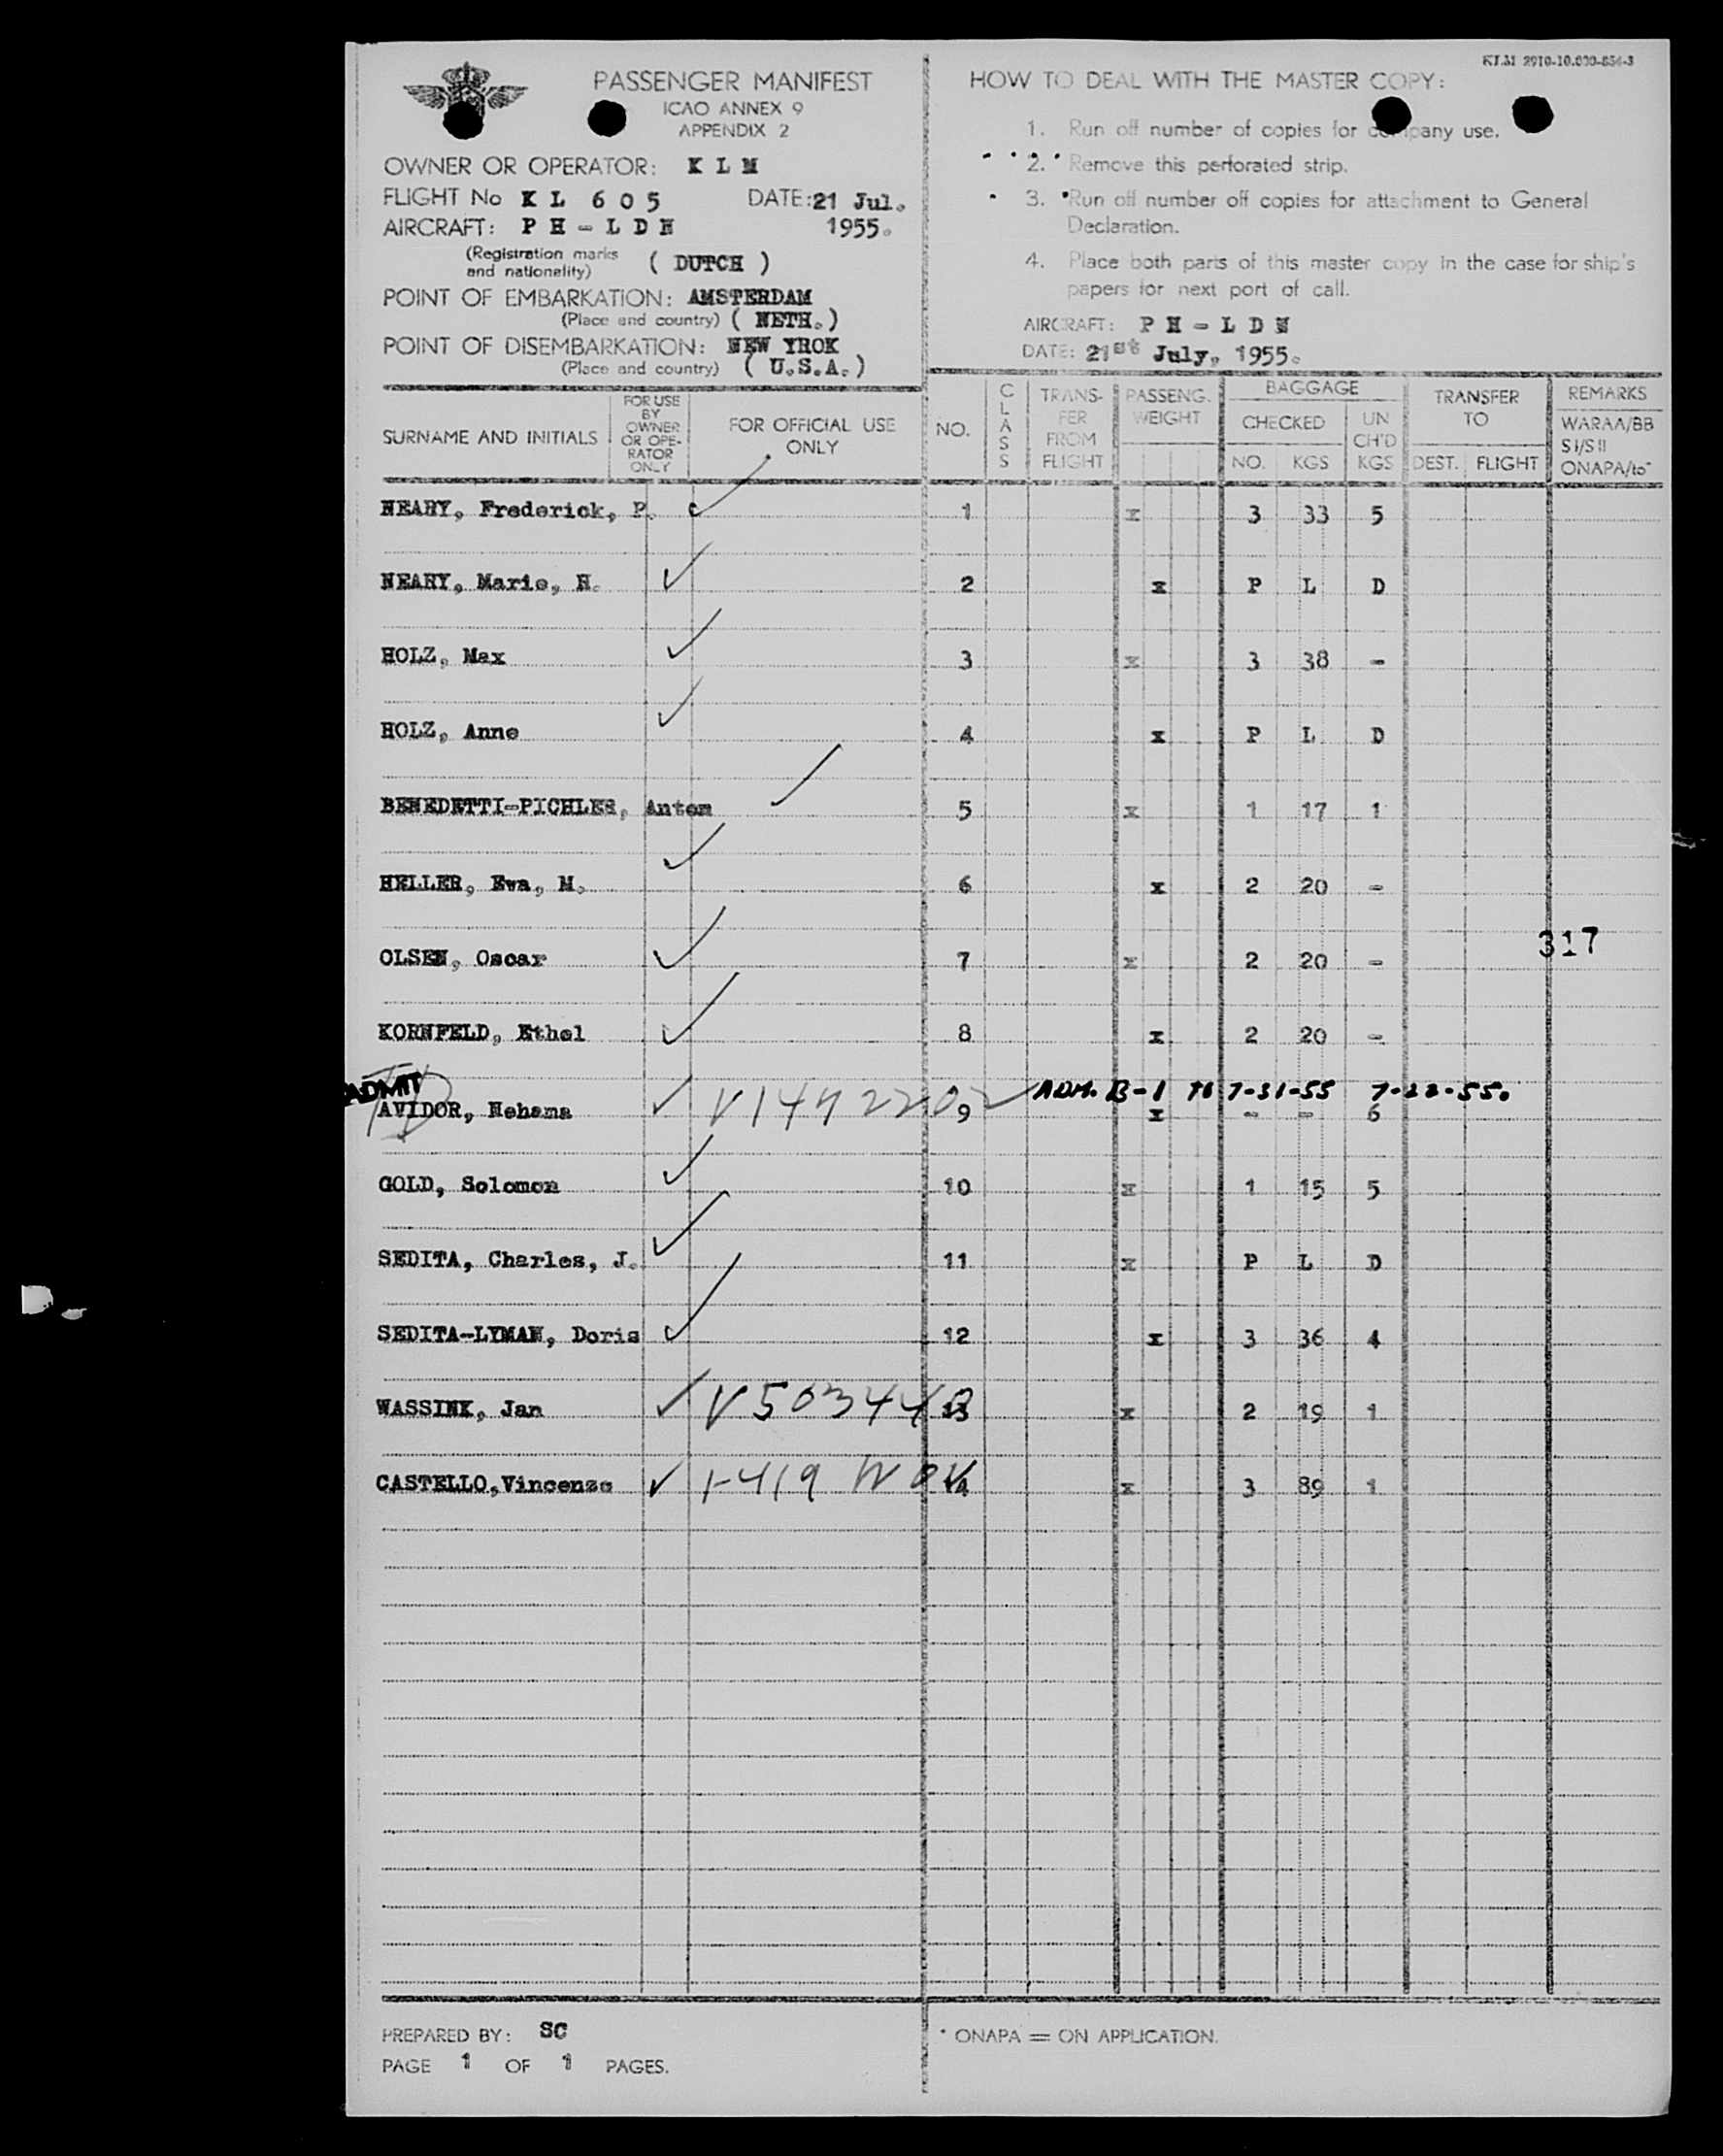 KLM 2910-10.000-854-3
PASSENGER MANIFEST
ICAO ANNEX 9
APPENDIX 2
OWNER OR OPERATOR: K L M
FLIGHT No K L 6 0 5 DATE: 21 Jul.
AIRCRAFT: P H - L D N 1955.
(Registration marks
and nationality) ( DUTCH )
POINT OF EMBARKATION: AMSTERDAM
(Place and country) ( NETH. )
POINT OF DISEMBARKATION: NEW YROK
(Place and country) ( U.S.A. )
HOW TO DEAL WITH THE MASTER COPY:
1. Run off number of copies for company use.
2. Remove this perforated strip.
3. Run off number off copies for attachment to General
Declaration.
4. Place both parts of this master copy in the case for ship's
papers for next port of call.
AIRCRAFT: P H - L D N
DATE: 21st July, 1955.
SURNAME AND INITIALS FOR USE BY OWNER OR OPE- RATOR ONLY FOR OFFICIAL USE ONLY NO. CLASS TRANS- FER FROM FLIGHT PASSENG. WEIGHT BAGGAGE CHECKED NO. KGS UN CH'D KGS TRANSFER TO DEST. FLIGHT REMARKS WARAA/BB SI/SII ONAPA/to*
NEARY, Frederick, P. 1 x 3 33 5
NEARY, Marie, H. 2 x P L D
HOLZ, Max 3 x 3 38 -
HOLZ, Anne 4 x P L D
BENEDETTI-PICHLER, Anton 5 x 1 17 1
HELLER, Ewa, M. 6 x 2 20 -
OLSEN, Oscar 7 x 2 20 -
317
KORNFELD, Ethel 8 x 2 20 -
ADMIT ADM. B-1 TO 7-31-55 7-22-55.
AVIDOR, Nehama V1442202 9 x - - 6
GOLD, Solomon 10 x 1 15 5
SEDITA, Charles, J. 11 x P L D
SEDITA-LYMAN, Doris 12 x 3 36 4
WASSINK, Jan V503448 13 x 2 19 1
CASTELLO, Vincenzo 1-419 14 x 3 89 1
PREPARED BY: SC
PAGE 1 OF 1 PAGES.
* ONAPA = ON APPLICATION.